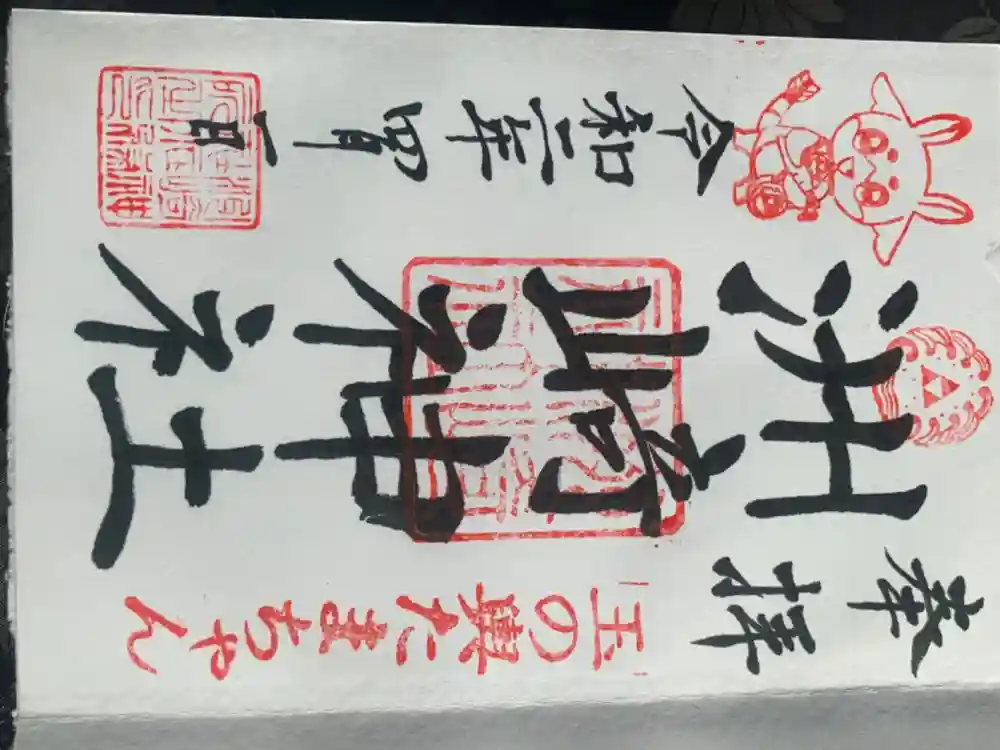 奉拝
玉の輿たまちゃん
洲崎神社
令和二年四月一日